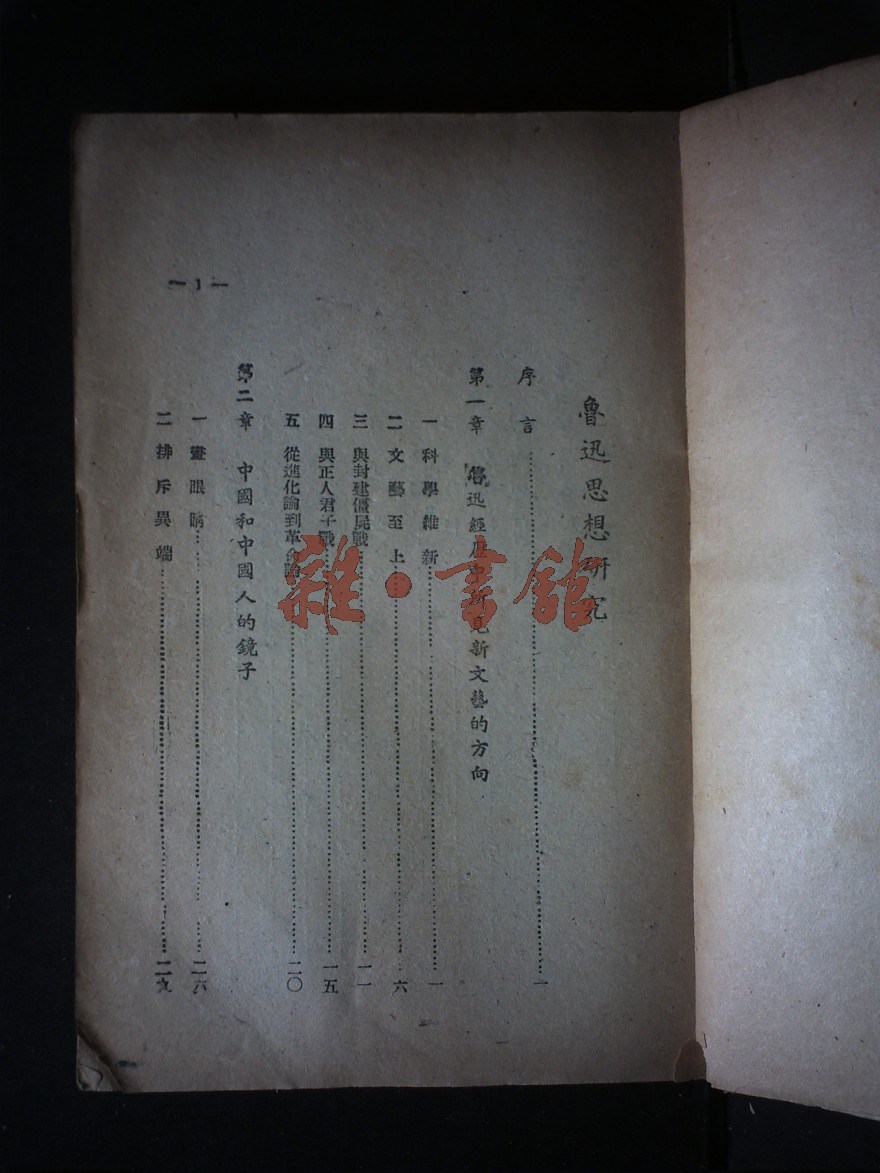 魯迅思想研究
序言……一
第一章 魯迅經歷中所見新文藝的方向
一 科學維新……一
二 文藝至上……六
三 與封建僵屍戰……一一
四 與正人君子戰……一五
五 從進化論到革命論……二〇
第二章 中國和中國人的鏡子
一 畫眼睛……二六
二 排斥異端……二九
— 1 —
雜·書館